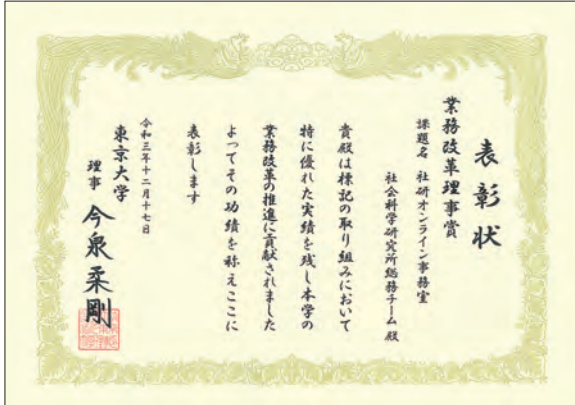 表彰状
業務改革理事賞
課題名 社研オンライン事務室
社会科学研究所総務チーム 殿
貴殿は標記の取り組みにおいて
特に優れた実績を残し本学の
業務改革の推進に貢献されました
よってその功績を称えここに
表彰します
令和三年十二月十七日
東京大学
理事 今泉柔剛